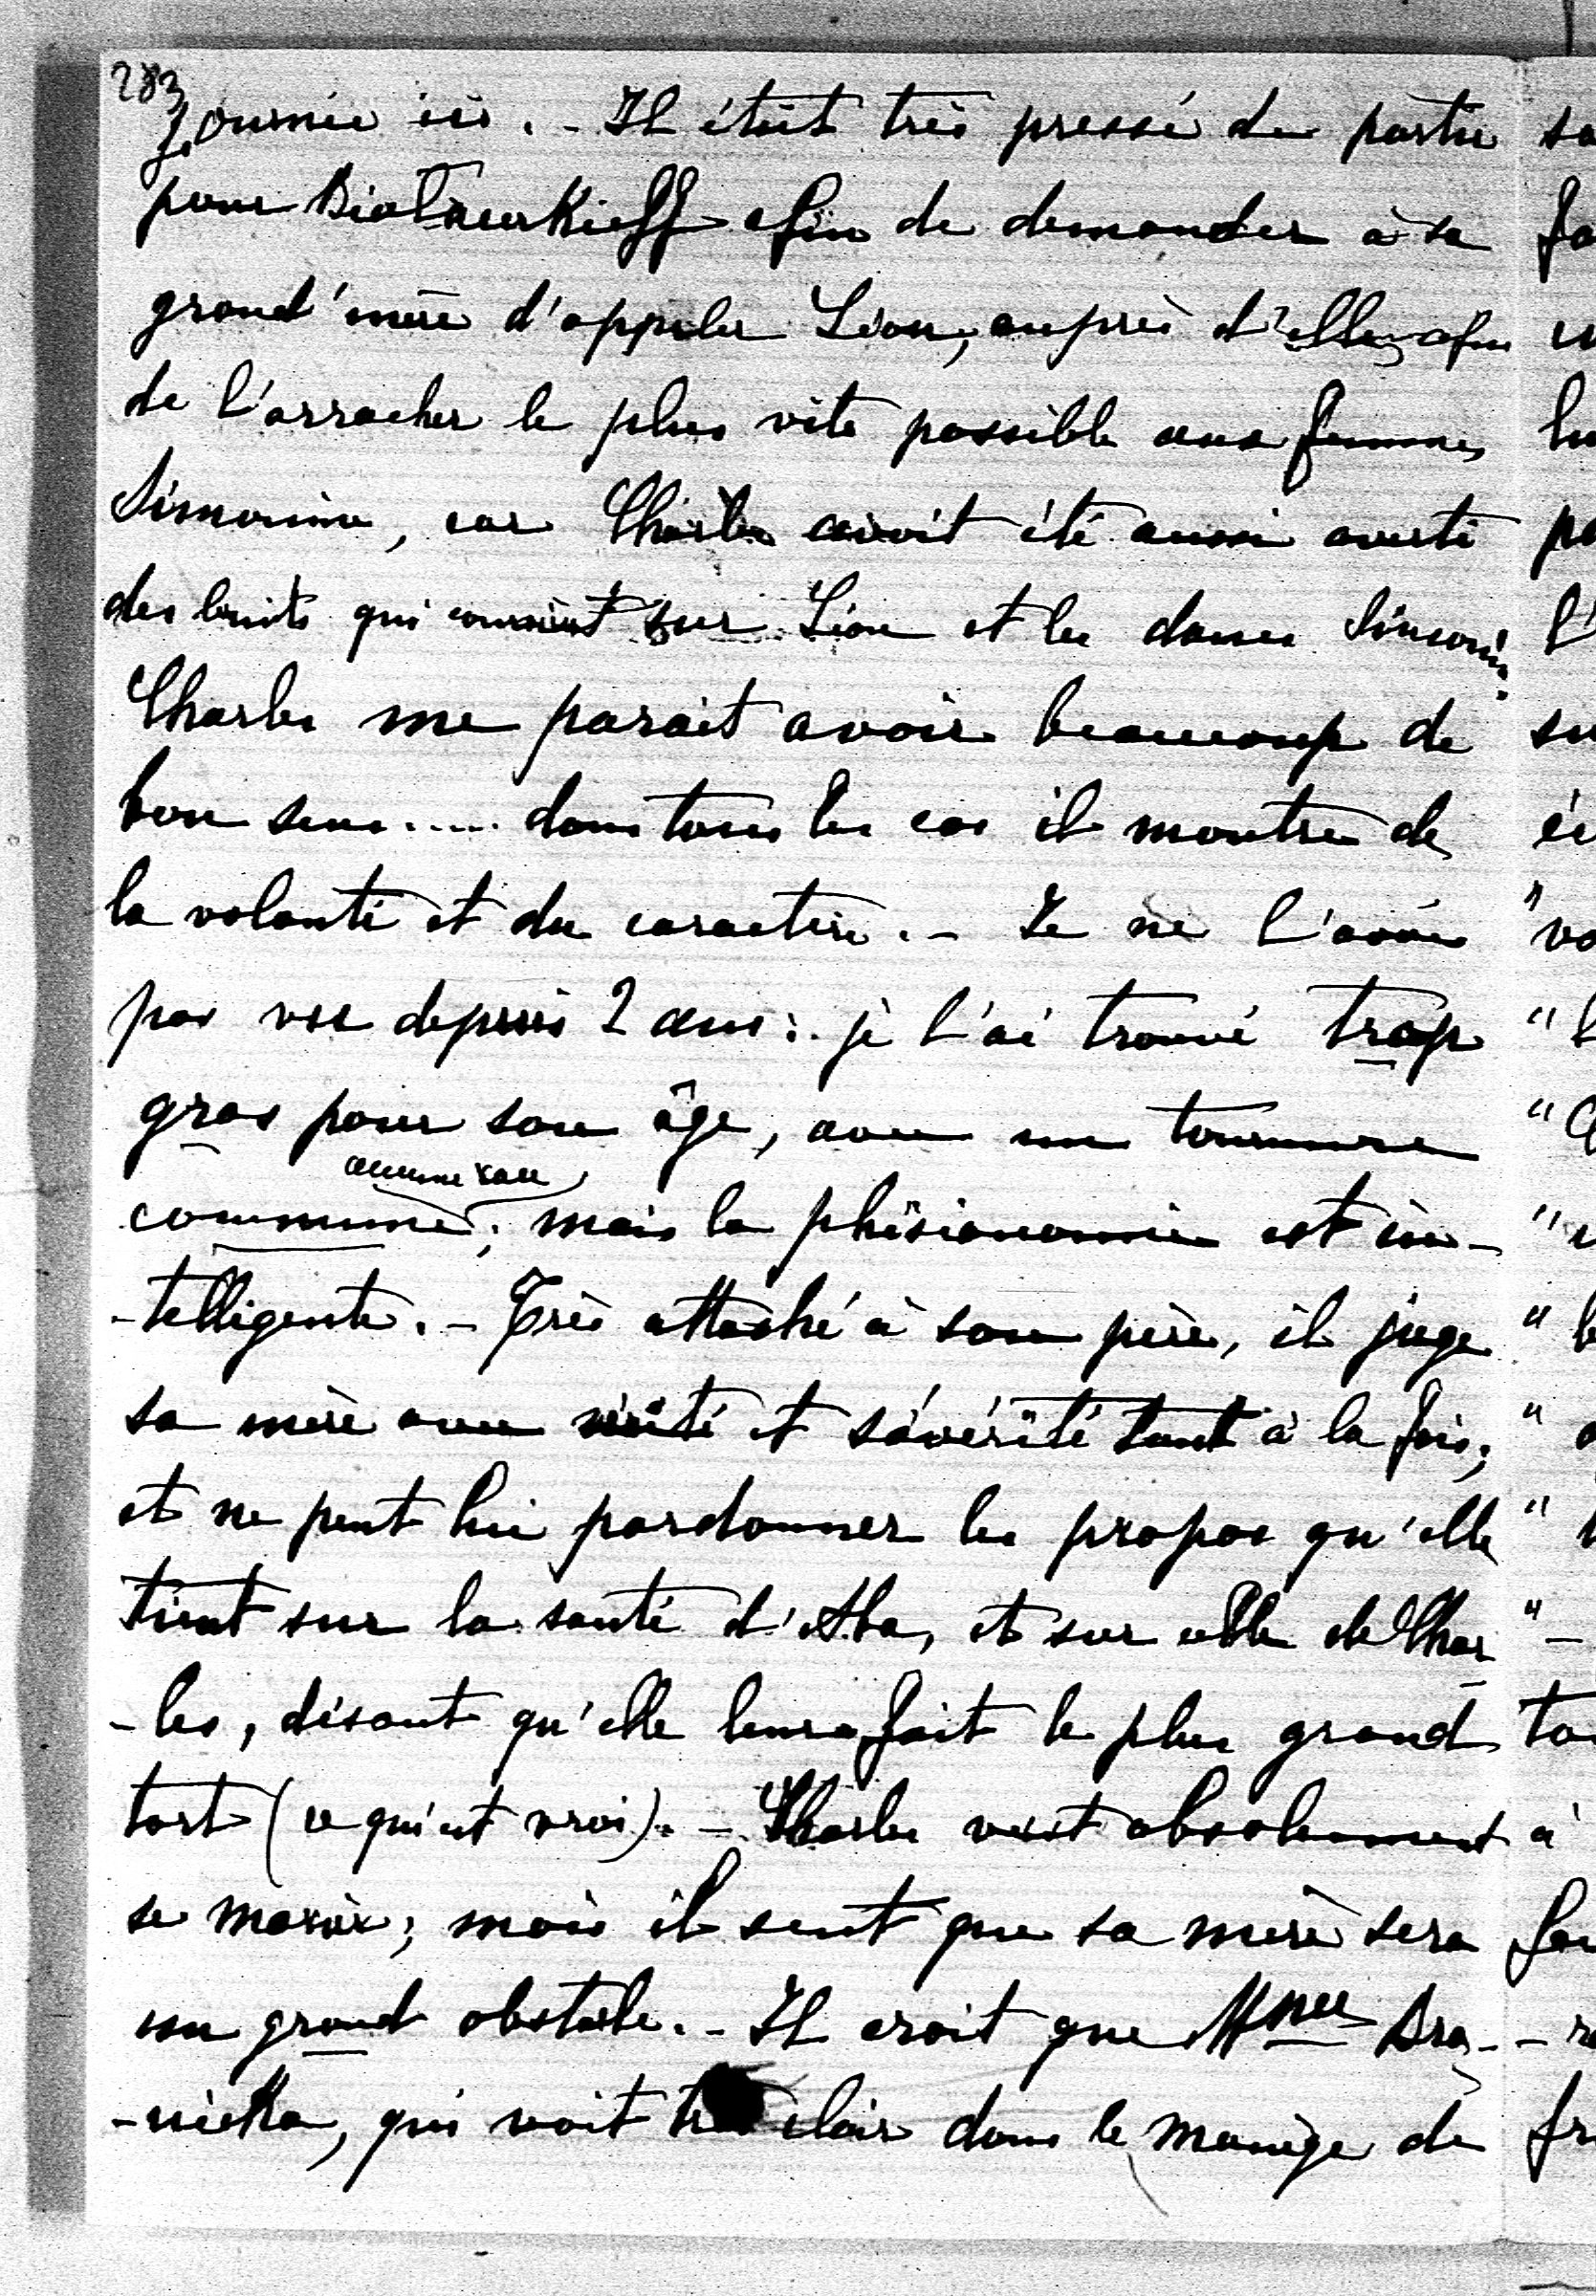 283
journée ici. - Il était très pressé de partir
pour Biotaurkieff afin de demander à sa
grand'mère d'appeler Léon, auprès d'elle, afin
de l'arracher le plus vite possible aux femmes
Simonin, car Charles avait été aussi averti
des bruits qui couraient sur Léon et les dames Simonin.
Charles me paraît avoir beaucoup de
bon sens.... dans tous les cas il montre de
la volonté et du caractère. - Je ne l'avais
pas vu depuis 2 ans: je l'ai trouvé trop
gros pour son âge, avec une tournure
commune; mais la phisionomie est in-
-telligente. - Très attaché à son père, il juge
sa mère avec vérité et sévérité tout à la fois;
et ne peut lui pardonner les propos qu'elle
tient sur la santé d'Aba, et sur celle de Char
-les, disant qu'elle leur fait le plus grand
tort (ce qui est vrai). - Charles veut absolument
se marier; mais il sent que sa mère sera
un grand obstacle. - Il croit que Mme Bra-
-nicka, qui voit très clair dans le manège de